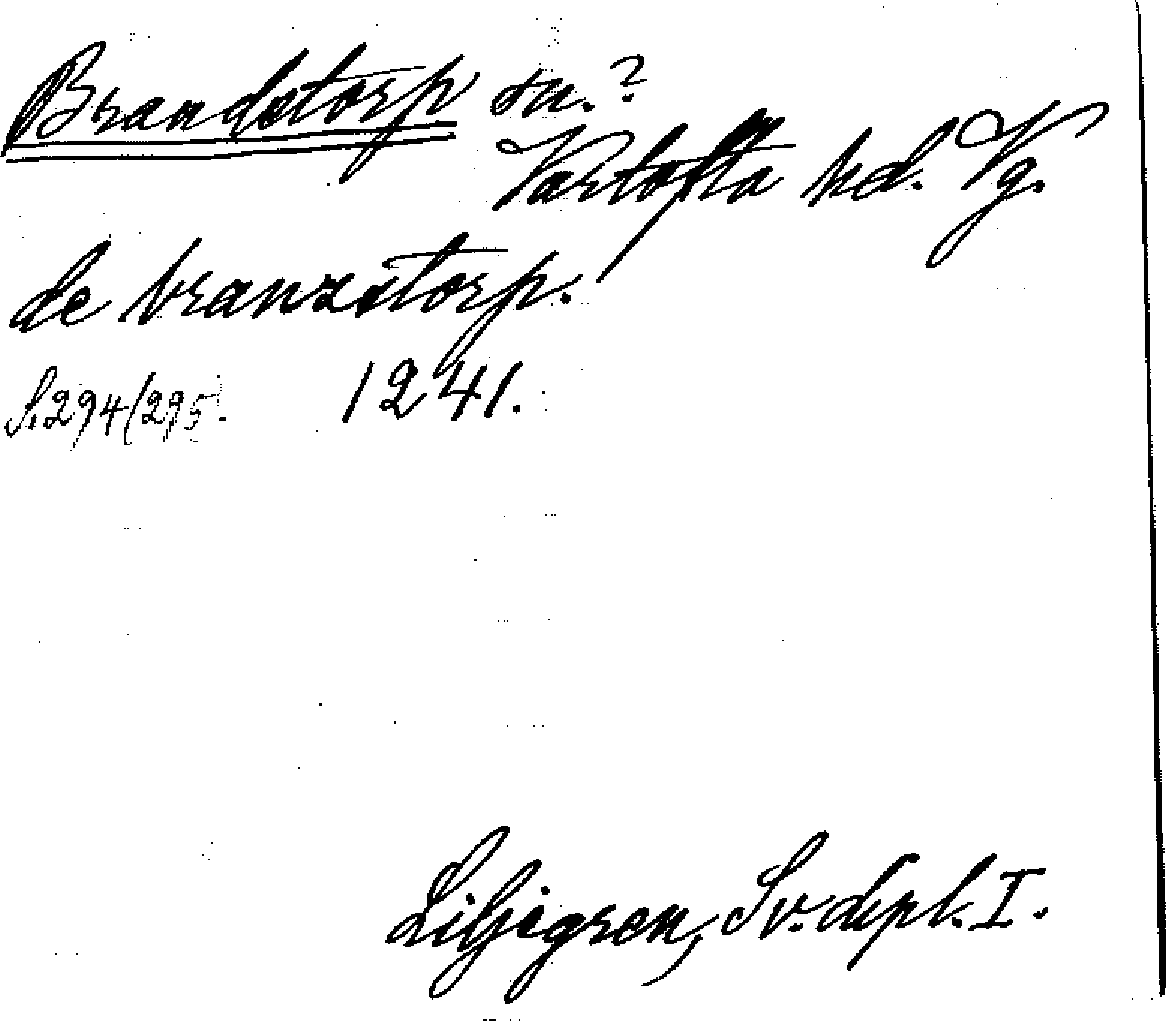 Brandstorp sn.?
Vartofta hd. Vg.
de branzstorp.
S. 294/295. 1241.
Liljegren, Sv. dipl. I.